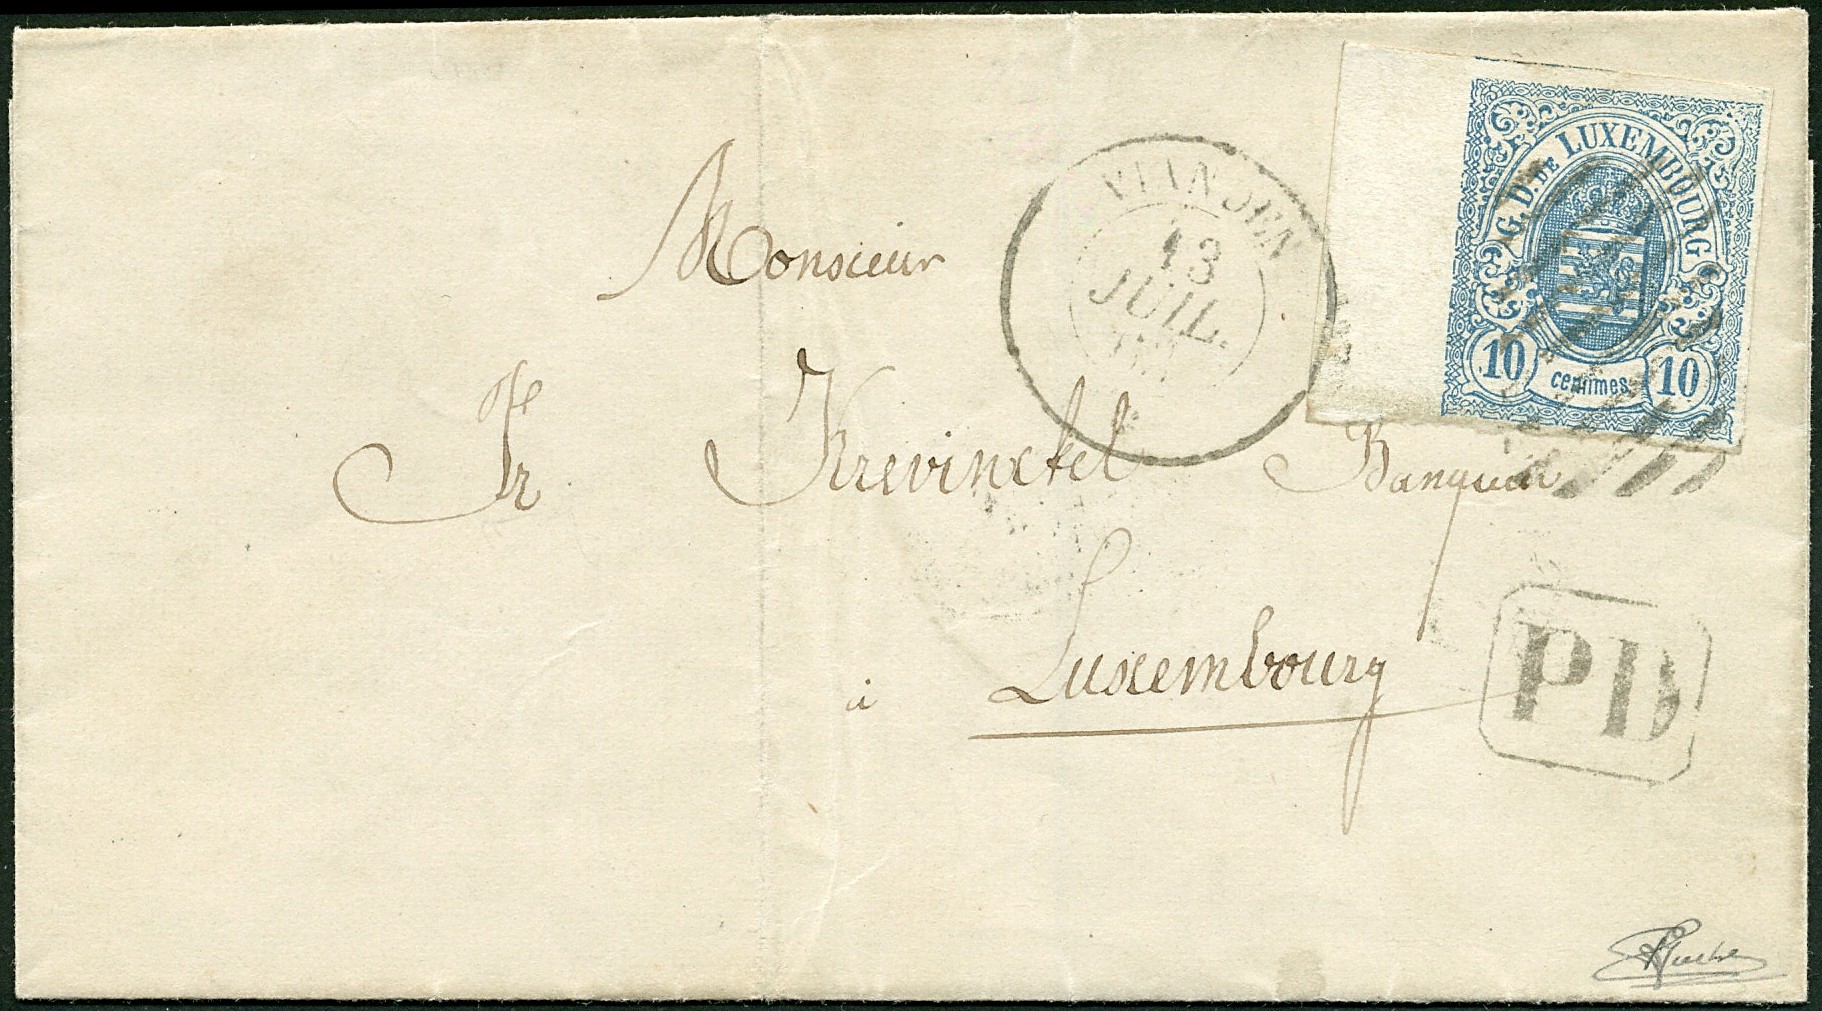 G. D. DE LUXEMBOURG
10 centimes 10
VIANDEN
13
JUIL.
Monsieur
Fr Krevinckel Banquier
à Luxembourg
PD